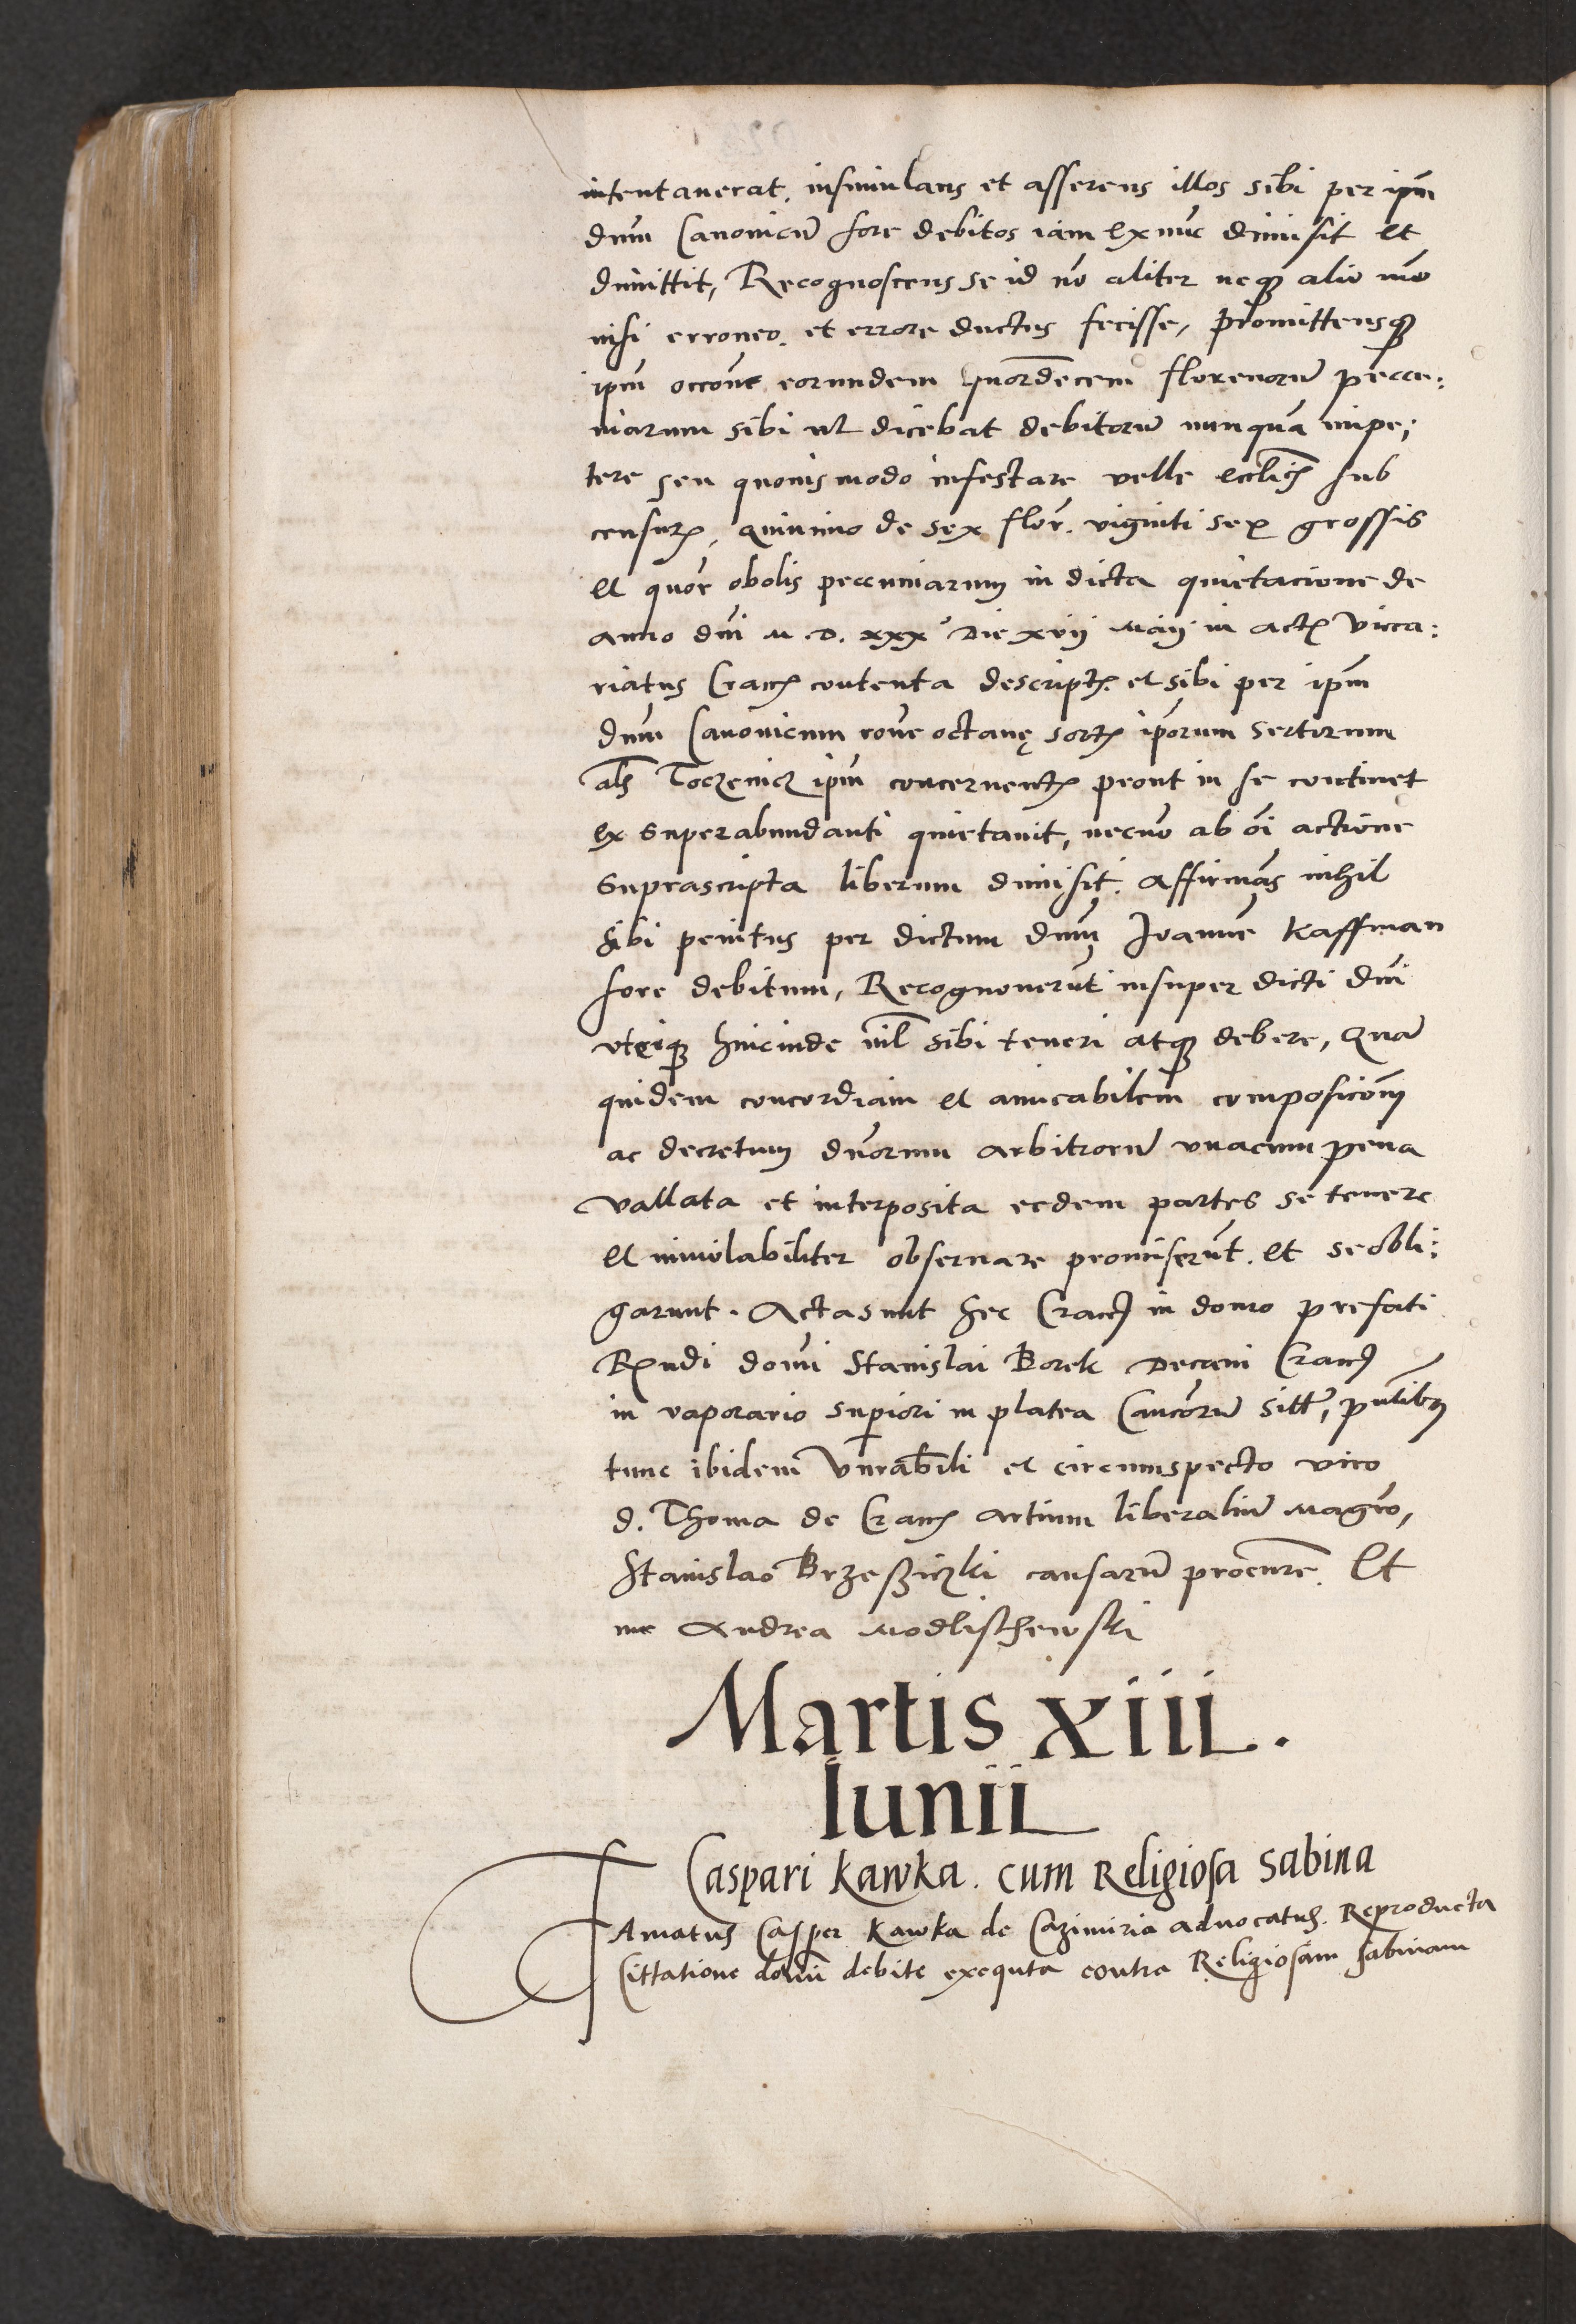 intentaverat, insimulans et asserens illos sibi per ipm̄
dnm̄ Canonicū fore debitos iam ex nūc dimisit et
dimittit, Recognoscens se id nō aliter neq₃ alio mō
nisi erroneo, et errore ductus fecisse, promittensq₃
ipm̄ occōne eorundem quordecem florenorū peccu:
niarum sibi ut dicebat debitorū nunquā impe:
tere seu quovismodo infestare velle eccl̄icꝭ sub
censurꝭ, Quinimo de sex flor̄. viginti sex grossis
et quor̄ obolis peccuniarum in dicta quietacione de
anno dnī M.D.xxx° Die xvij Maij in actꝭ Vicca:
riatus Cracꝭ contenta descriptꝭ. et sibi per ipm̄
dnm̄ Canonicum rōne octavę sortꝭ ip̄orum sertorum
als̄ Toczenicz ipm̄ concernentꝭ prout in se continet
ex superabundanti quietavit, necnō ab oī actione
suprascripta liberum dimisit. affirmās nihil
sibi penitus per dictum dnm̄ Joannē Kaffman
fore debitum, Recognoverūt insuper dicti dnī
utriq₃ hincinde nil̄ sibi teneri atq₃ debere, Quā
quidem concordiam et amicabilem composicōm
ac decretum dn̄orum arbitrorū unacum pena
vallata et interposita eedem partes se tenere
et inviolabiliter observare promiserūt. et se obli:
garunt. Acta sunt hec Cracꝭ in domo prefati
Rndi domī Stanislai Borek Decani Cracꝭ
in vaporario superiori in platea Cancōrū sitt̄, pn̄tibꝯ
tunc ibidem Vnrabili et circumspecto viro
d. Thoma de Cracꝭ artium liberaliū Magrō,
Stanislao Brzesziczki causarū procure. Et
me Andrea Modlischewski
Martis xiii.
Iunii
Caspari Kawka. cum Religiosa Sabina
Famatus Casper Kawka de Cazimiria advocatus. Reproducta
Cittatione domī debite exequta contra Religiosam Sabinam